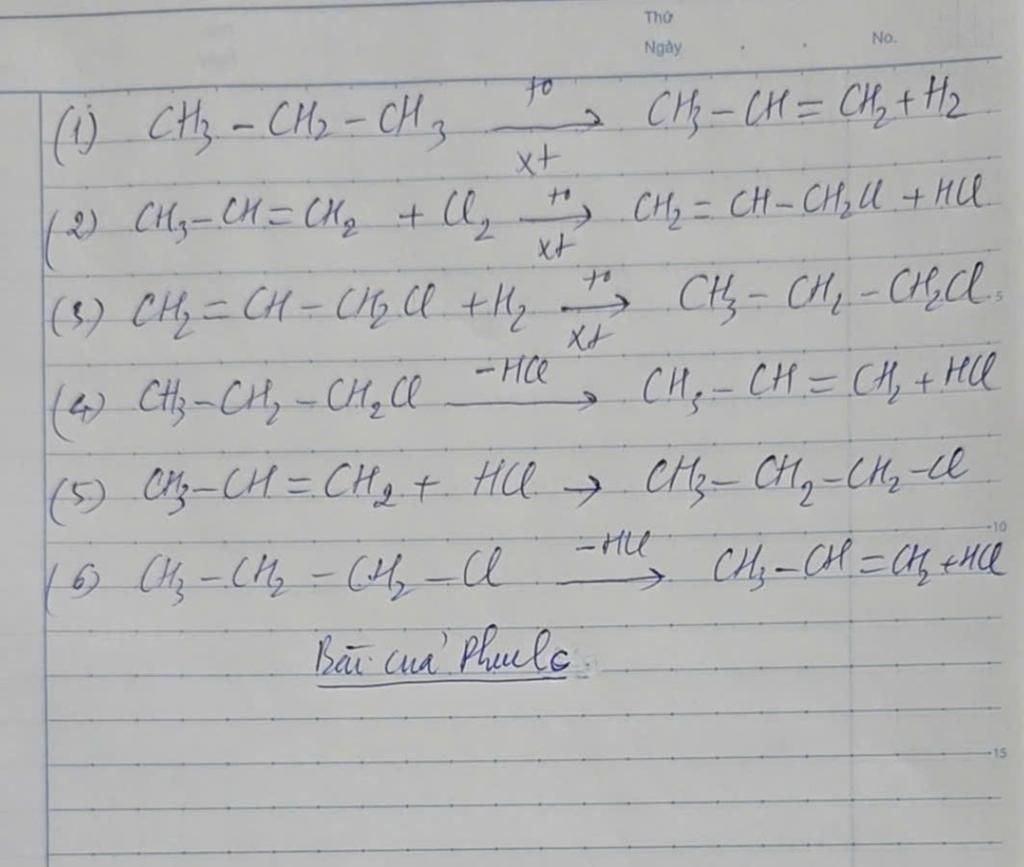 Thứ
Ngày . . No.
(1) CH3 – CH2 – CH3 \xrightarrow[xt]{t°} CH3 – CH = CH2 + H2
(2) CH3 – CH = CH2 + Cl2 \xrightarrow[xt]{t°} CH2 = CH – CH2Cl + HCl
(3) CH2 = CH – CH2Cl + H2 \xrightarrow[xt]{t°} CH3 – CH2 – CH2Cl
5
(4) CH3 – CH2 – CH2Cl \xrightarrow{-HCl} CH3 – CH = CH2 + HCl
(5) CH3 – CH = CH2 + HCl → CH3 – CH2 – CH2 – Cl
10
(6) CH3 – CH2 – CH2 – Cl \xrightarrow{-HCl} CH3 – CH = CH2 + HCl
Bài của
15